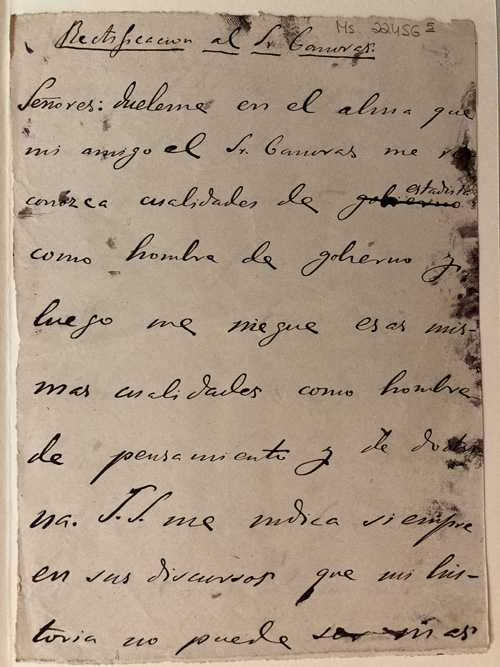 Ms 22456 5
Rectificacion al Sr. Canovas.
Señores: dueleme en el alma que
mi amigo el Sr. Canovas me re
conozca cualidades de gobierno estadista
como hombre de gobierno y
luego me niegue esas mis-
mas cualidades como hombre
de pensamiento y de doctri
na. S.S. me indica siempre
en sus discursos que mi his-
toria no puede ser mas